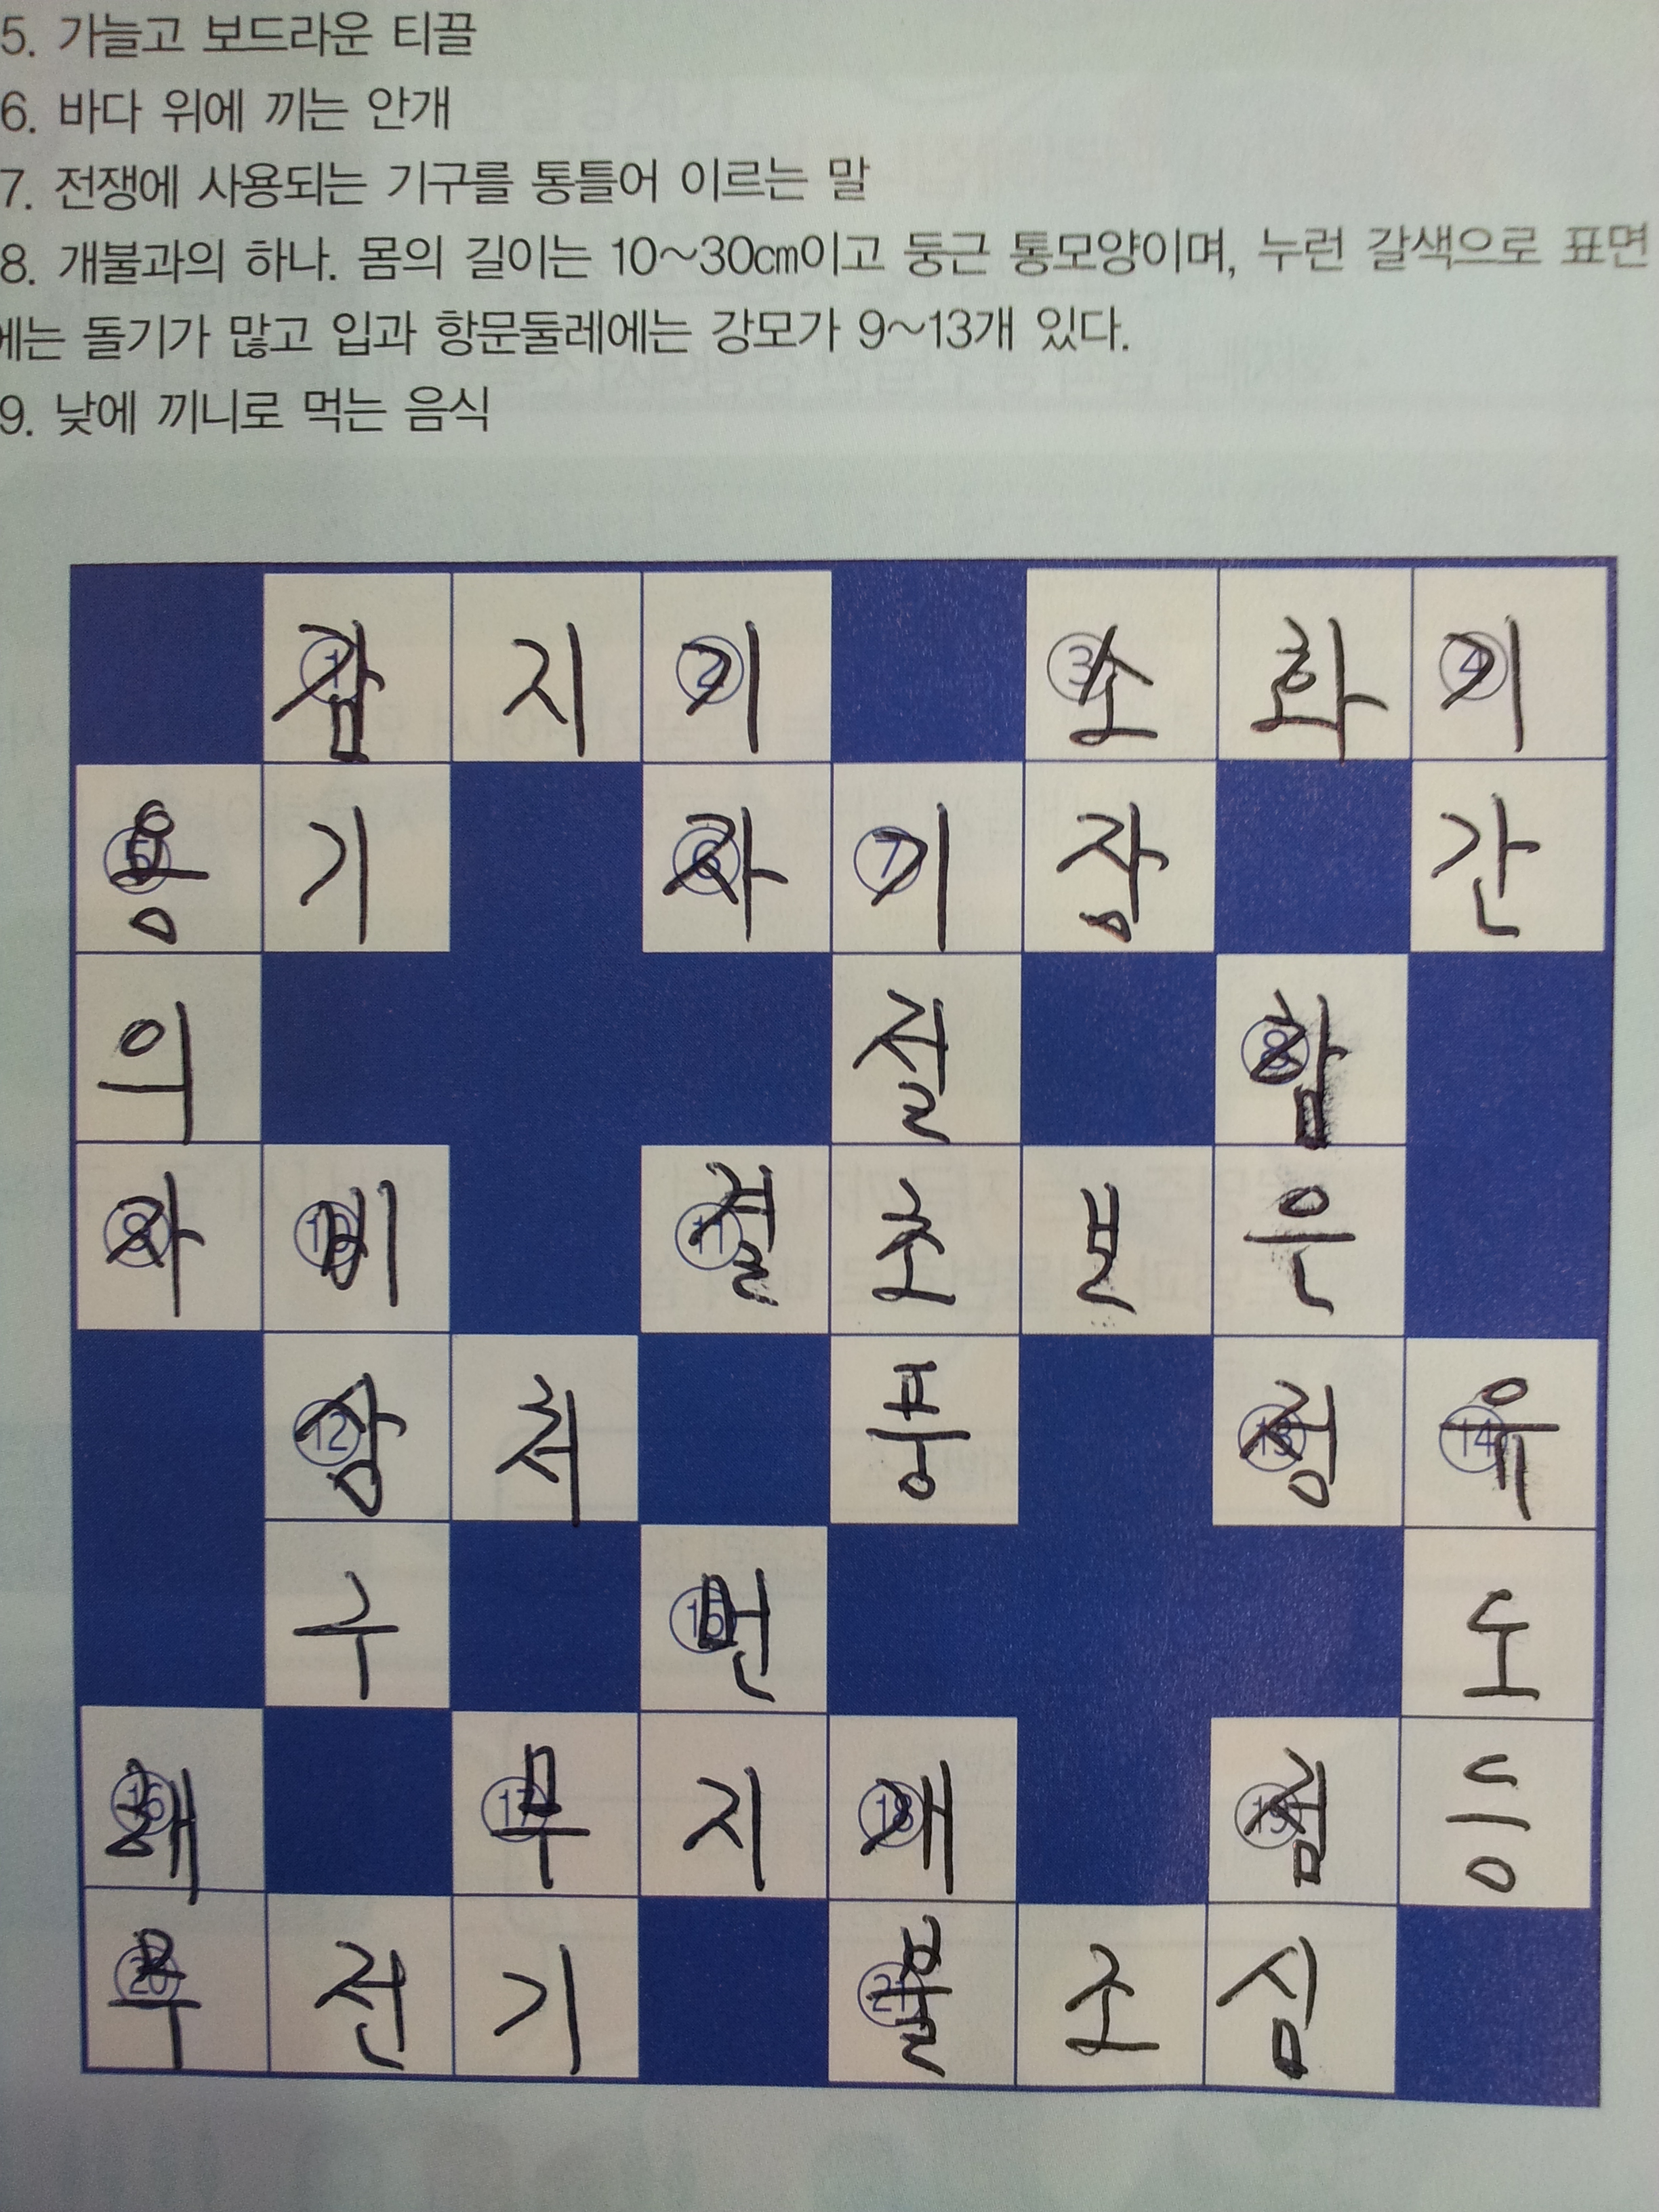 5. 가늘고 보드라운 티끌
6. 바다 위에 끼는 안개
7. 전쟁에 사용되는 기구를 통틀어 이르는 말
8. 개불과의 하나. 몸의 길이는 10~30cm이고 둥근 통모양이며, 누런 갈색으로 표면
에는 돌기가 많고 입과 항문둘레에는 강모가 9~13개 있다.
9. 낮에 끼니로 먹는 음식
① 감 지 ② 기 ③ 소 화 ④ 기
⑤ 용 기 ⑥ 자 ⑦ 기 장 간
의 절 ⑧ 함
⑨ 자 ⑩ 비 ⑪ 겉 조 보 은
⑫ 상 처 풍 ⑬ 정 ⑭ 유
구 ⑮ 먼 도
⑯ 해 ⑰ 무 지 ⑱ 개 ⑲ 점 등
⑳ 무 전 기 ㉑ 불 조 심